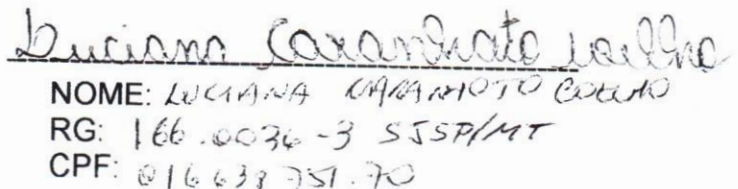 Luciana Caranhato Coelho
NOME: LUCIANA CARANHATO COELHO
RG: 166.0036-3 SJSP/MT
CPF: 016 638 751.70